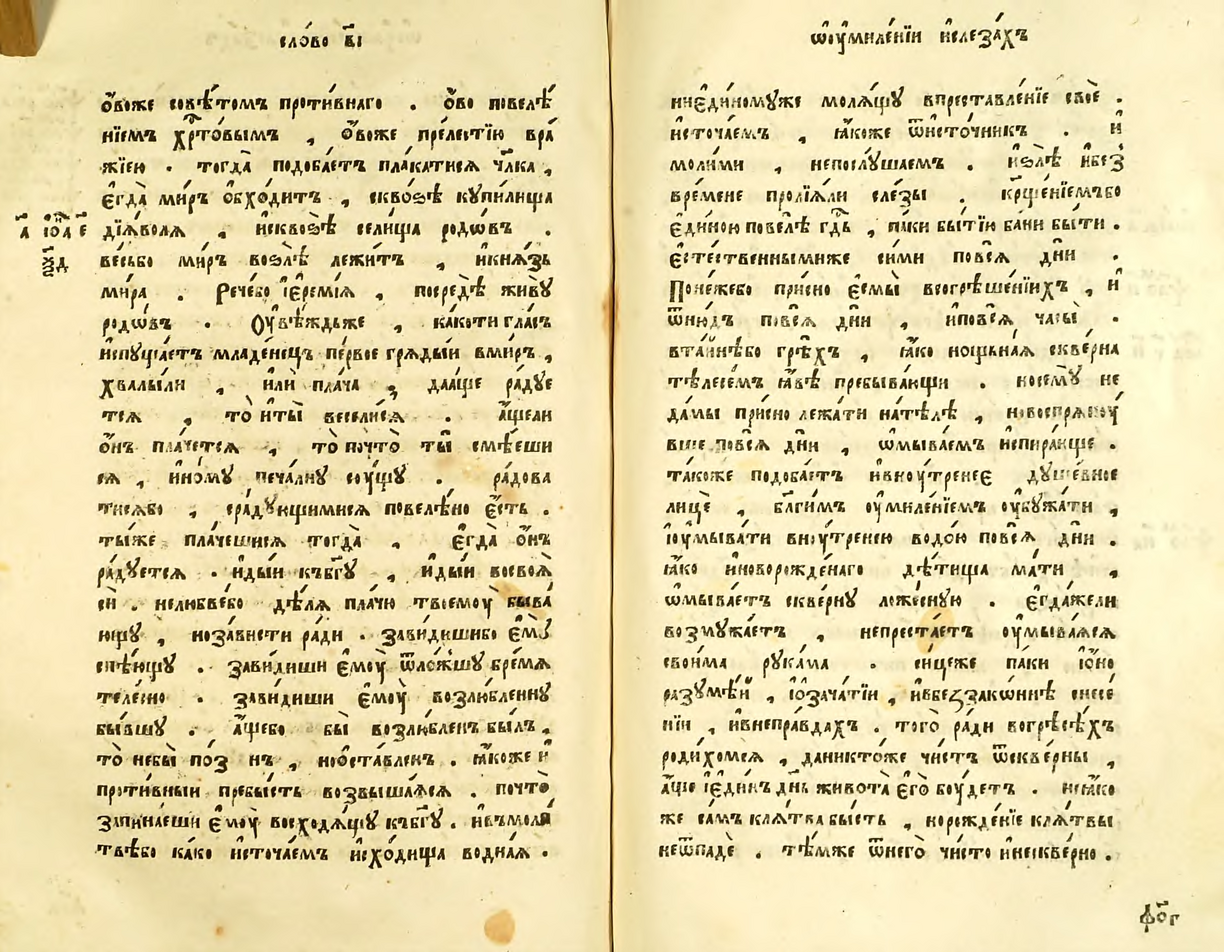 сло́во в҃і
ѻ҆́воже совѣ́томъ проти́внаго . ѻ҆́во повелѣ́
нїемъ хр҇то́вымъ , ѻ҆́воже пре́лестїю вра́
жїею . тогда̀ подоба́етъ пла́катися чл҃ка ,
є҆гда̀ ми́ръ ѻ҆бхо́дитъ , сквоѕѣ̀ кꙋпи́лища
дїѧ́волѧ , искво́ѕѣ се́лища родѡ́въ .
ве́сьбо ми́ръ воѕлѣ̀ лежи́тъ , и҆кнѧ́зь
ми́ра . Рече́бо і҆ереми́ѧ , посредѣ̀ живꙋ̀
родѡ́въ . Оу҆вѣ́ждьже , ка́коти гла́съ
и҆спꙋща́етъ младе́нецъ пе́рвое грѧды́и вми́ръ ,
хвалы́ли , и҆лѝ пла́ча , даа́ще ра́дꙋе
тсѧ , то̀ и҆ты̀ весели́сѧ . а҆́щели
ѻ҆́нъ пла́четсѧ , то̀ почто̀ ты̀ смѣе́ши
сѧ , и҆но́мꙋ печа́лнꙋ сꙋ́щꙋ . ра́дова
тисѧбо , сра́дꙋющимисѧ повелѣ́но є҆́сть .
ты́же пла́чешисѧ тогда̀ , є҆гда̀ ѻ҆́нъ
ра́дꙋетсѧ . и҆ды́и къбг҃ꙋ , и҆ды́и восвоѧ̀
сѝ . нелюбве́бо дѣ́лѧ пла́чю твоемоу̀ быва́
ющꙋ , ноза́висти ра́ди . зави́дишибо є҆мꙋ̀
спѣ́ющꙋ . зави́диши є҆моу̀ ѿло́жшꙋ бре́мѧ
теле́сно . зави́диши є҆моу̀ возлю́бленнꙋ
бы́вшꙋ . а҆́щебо бы̀ возлю́бленъ бы́лъ ,
то̀ небы̀ по́з нъ , ниѻ҆ста́вленъ . ꙗ҆́коже и҆
проти́вныи пребы́сть возвыша́ѧсѧ . почто̀
запина́еши є҆моу̀ восходѧ́щꙋ къбг҃ꙋ . и҆въмоли́
твѣбо ка́ко и҆сточа́емъ и҆схо́дища во́днаѧ .
ѡ҆оу҆миле́нїи и҆слеза́хъ
ниє҆ди́номꙋже молѧ́щꙋ впреставле́нїе своѐ .
и҆сточа́емъ , ꙗ҆́коже ѿи҆сто́чникъ . и҆
моли́ми , непослꙋ́шаемъ . и҆ѕлѣ̀ и҆без̾
вре́мене пролїѧ́ли сле́зы . крщ҃е́нїемъбо
є҆ди́ною повелѣ̀ гд҇ь , па́ки бытїю̀ ба́ни бы́ти .
є҆сте́ственнымиже си́ми повсѧ̀ дн҃и .
Поне́жебо при́сно є҆смы̀ всогрѣше́нїихъ , и҆
ѿню́дъ повсѧ̀ дн҃и , и҆повсѧ̀ часы̀ .
вта́йнѣбо грѣ́хъ , ꙗ҆́ко нощьна́ѧ скве́рна
тѣле́семъ ꙗ҆́вѣ пребыва́ющи . носемꙋ̀ не
да́мы при́сно лежа́ти натѣ́лѣ , новоспрѧноу́
вше повсѧ̀ дн҃и , ѡ҆мыва́емъ и҆спира́юще .
та́коже подоба́етъ и҆внꙋ́тренеє дꙋше́вное
лицѐ , бл҃ги́мъ оу҆миле́нїемъ оу҆бꙋжа́ти ,
і҆оу҆мыва́ти внꙋ́тренею водо́ю повсѧ̀ дн҃и .
ꙗ҆́ко и҆новорожде́наго дѣ́тища ма́ти ,
ѡ҆мыва́етъ скве́рнꙋ ложеснꙋ́ю . є҆гда́жели
возмꙋжа́етъ , непреста́етъ оу҆мыва́ѧсѧ
свои́ма рꙋка́ма . си́цеже па́ки і҆ѻ҆́но
разꙋмѣ́й , і҆ѻ҆зача́тїи , и҆вбеззако́нниѣ снесе́
нїи , и҆внепра́вдахъ . того̀ ра́ди вогрѣсѣ́хъ
роди́хомсѧ , даникто́же чи́стъ ѿскве́рны ,
а҆́ще і҆є҆ди́нъ дн҃ь живота̀ є҆гѡ̀ бꙋ́детъ . неꙗ҆́ко
же са́мъ клѧ́тва бы́сть , норожде́нїе клѧ́твы
неѿпадѐ . тѣ́мже ѿнего̀ чи́сто и҆нескве́рно .